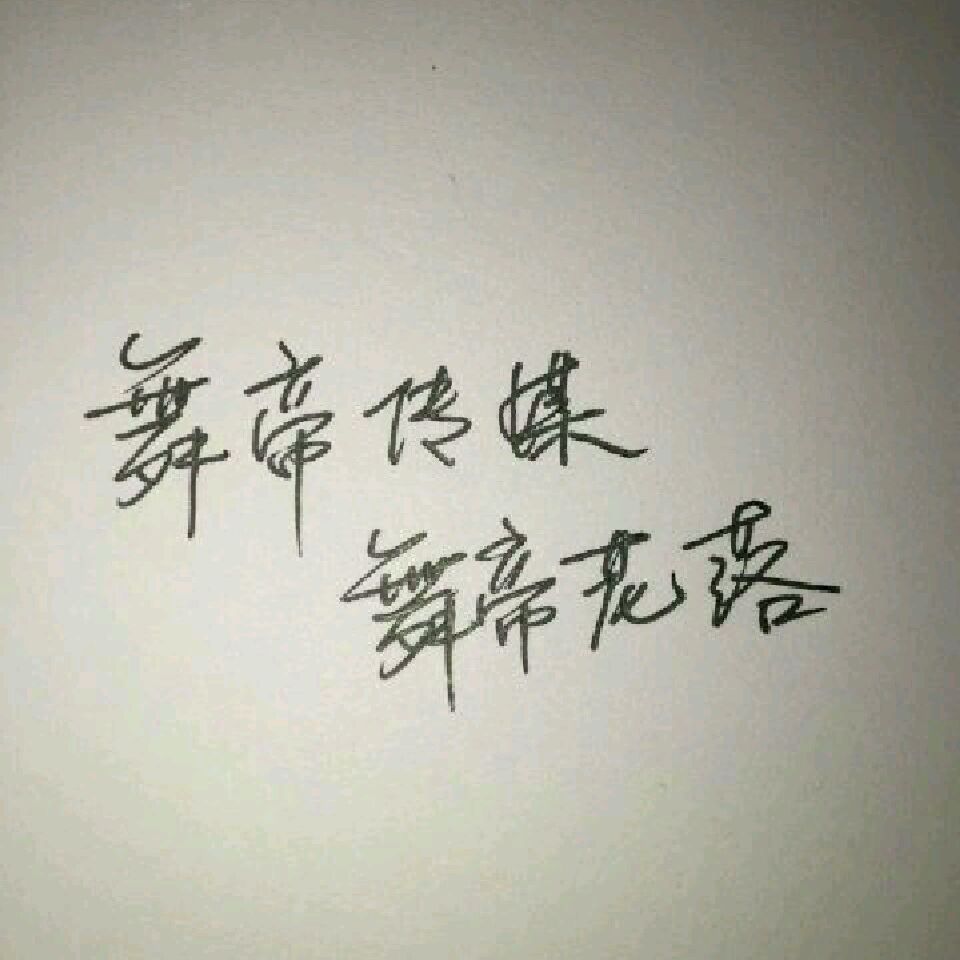 舞帝传媒
舞帝花落